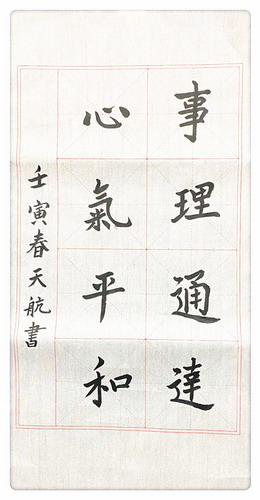 事理通達
心氣平和
壬寅春天航書